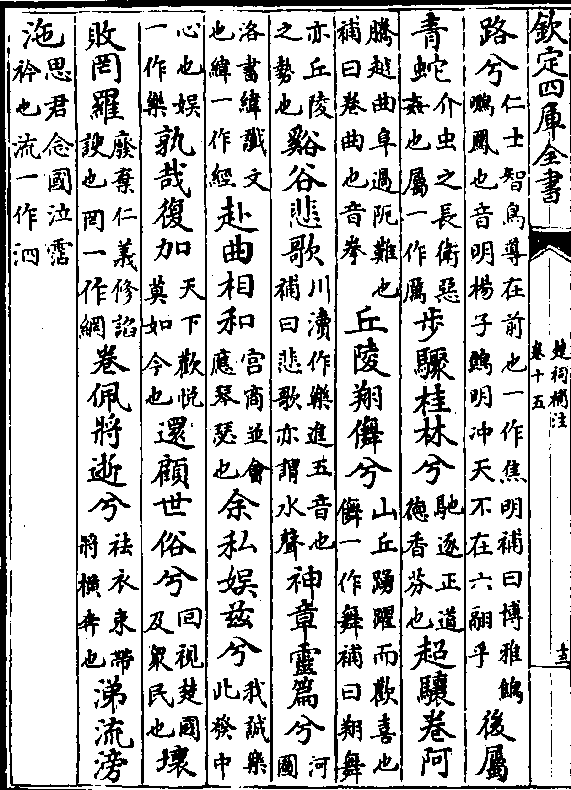 欽定四庫全書
楚祠補注
卷十五
十三
路兮仁士智鳥導在前也一作焦明補曰博雅鷦䳟鳳也音明楊子鷦明冲天不在六翮乎後屬
青蛇介虫之長衛惡姦也屬一作厲步驟桂林兮馳逐正道德香芬也超驤卷阿
騰越曲阜過阨難也補曰卷曲也音拳丘陵翔儛兮山丘踴躍而歡喜也儛一作舞補曰翔舞
亦丘陵之勢也谿谷悲歌川瀆作樂進五音也補曰悲歌亦謂水聲神章靈篇兮河圖
洛書緯讖文也緯一作經赴曲相和宮商並會應琴瑟也余私娱茲兮我誠樂此發中
心也娱一作樂孰哉復加天下歡悅莫如今也還顧世俗兮回視楚國及衆民也壞
敗罔羅廢棄仁義修諂諛也罔一作網卷佩將逝兮袪衣束帶將橫奔也涕流滂
沲思君念國泣霑衿也流一作泗